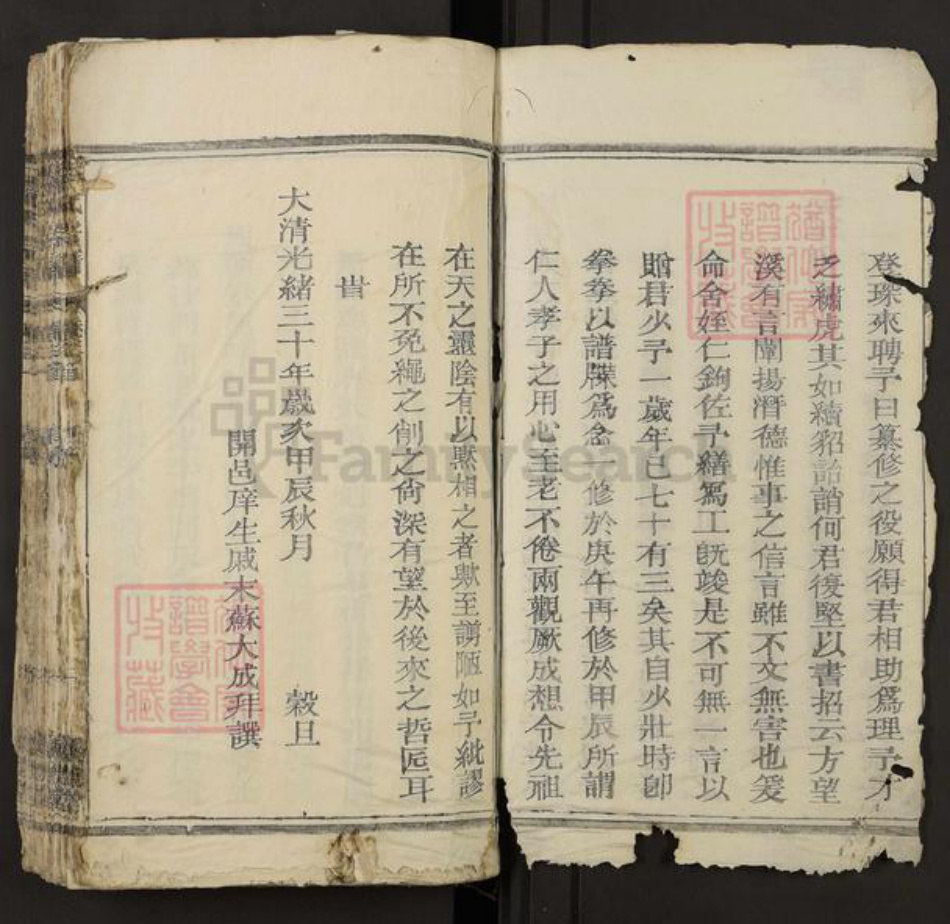 登琛來聘予曰纂修之役願得君相助為理予才
乏繡虎其如續貂詒誚何君復堅以書招云方望
溪有言闡揚潛德惟事之信言雖不文無害也爰
命舍姪仁鉤佐予繕寫工既竣是不可無一言以
贈君少予一歲年已七十有三矣其自少壯時卽
拳拳以譜牒爲念一修於庚午再修於甲辰所謂
仁人孝子之用心至老不倦兩觀厥成想令先祖
在天之靈陰有以默相之者歟至謭陋如予紕謬
在所不免繩之削之尙深有望於後來之哲匠耳
旹
大清光緒三十年歲次甲辰秋月 穀旦
開邑庠生戚末蘇大成拜譔
譜學會
收藏
FamilySearch